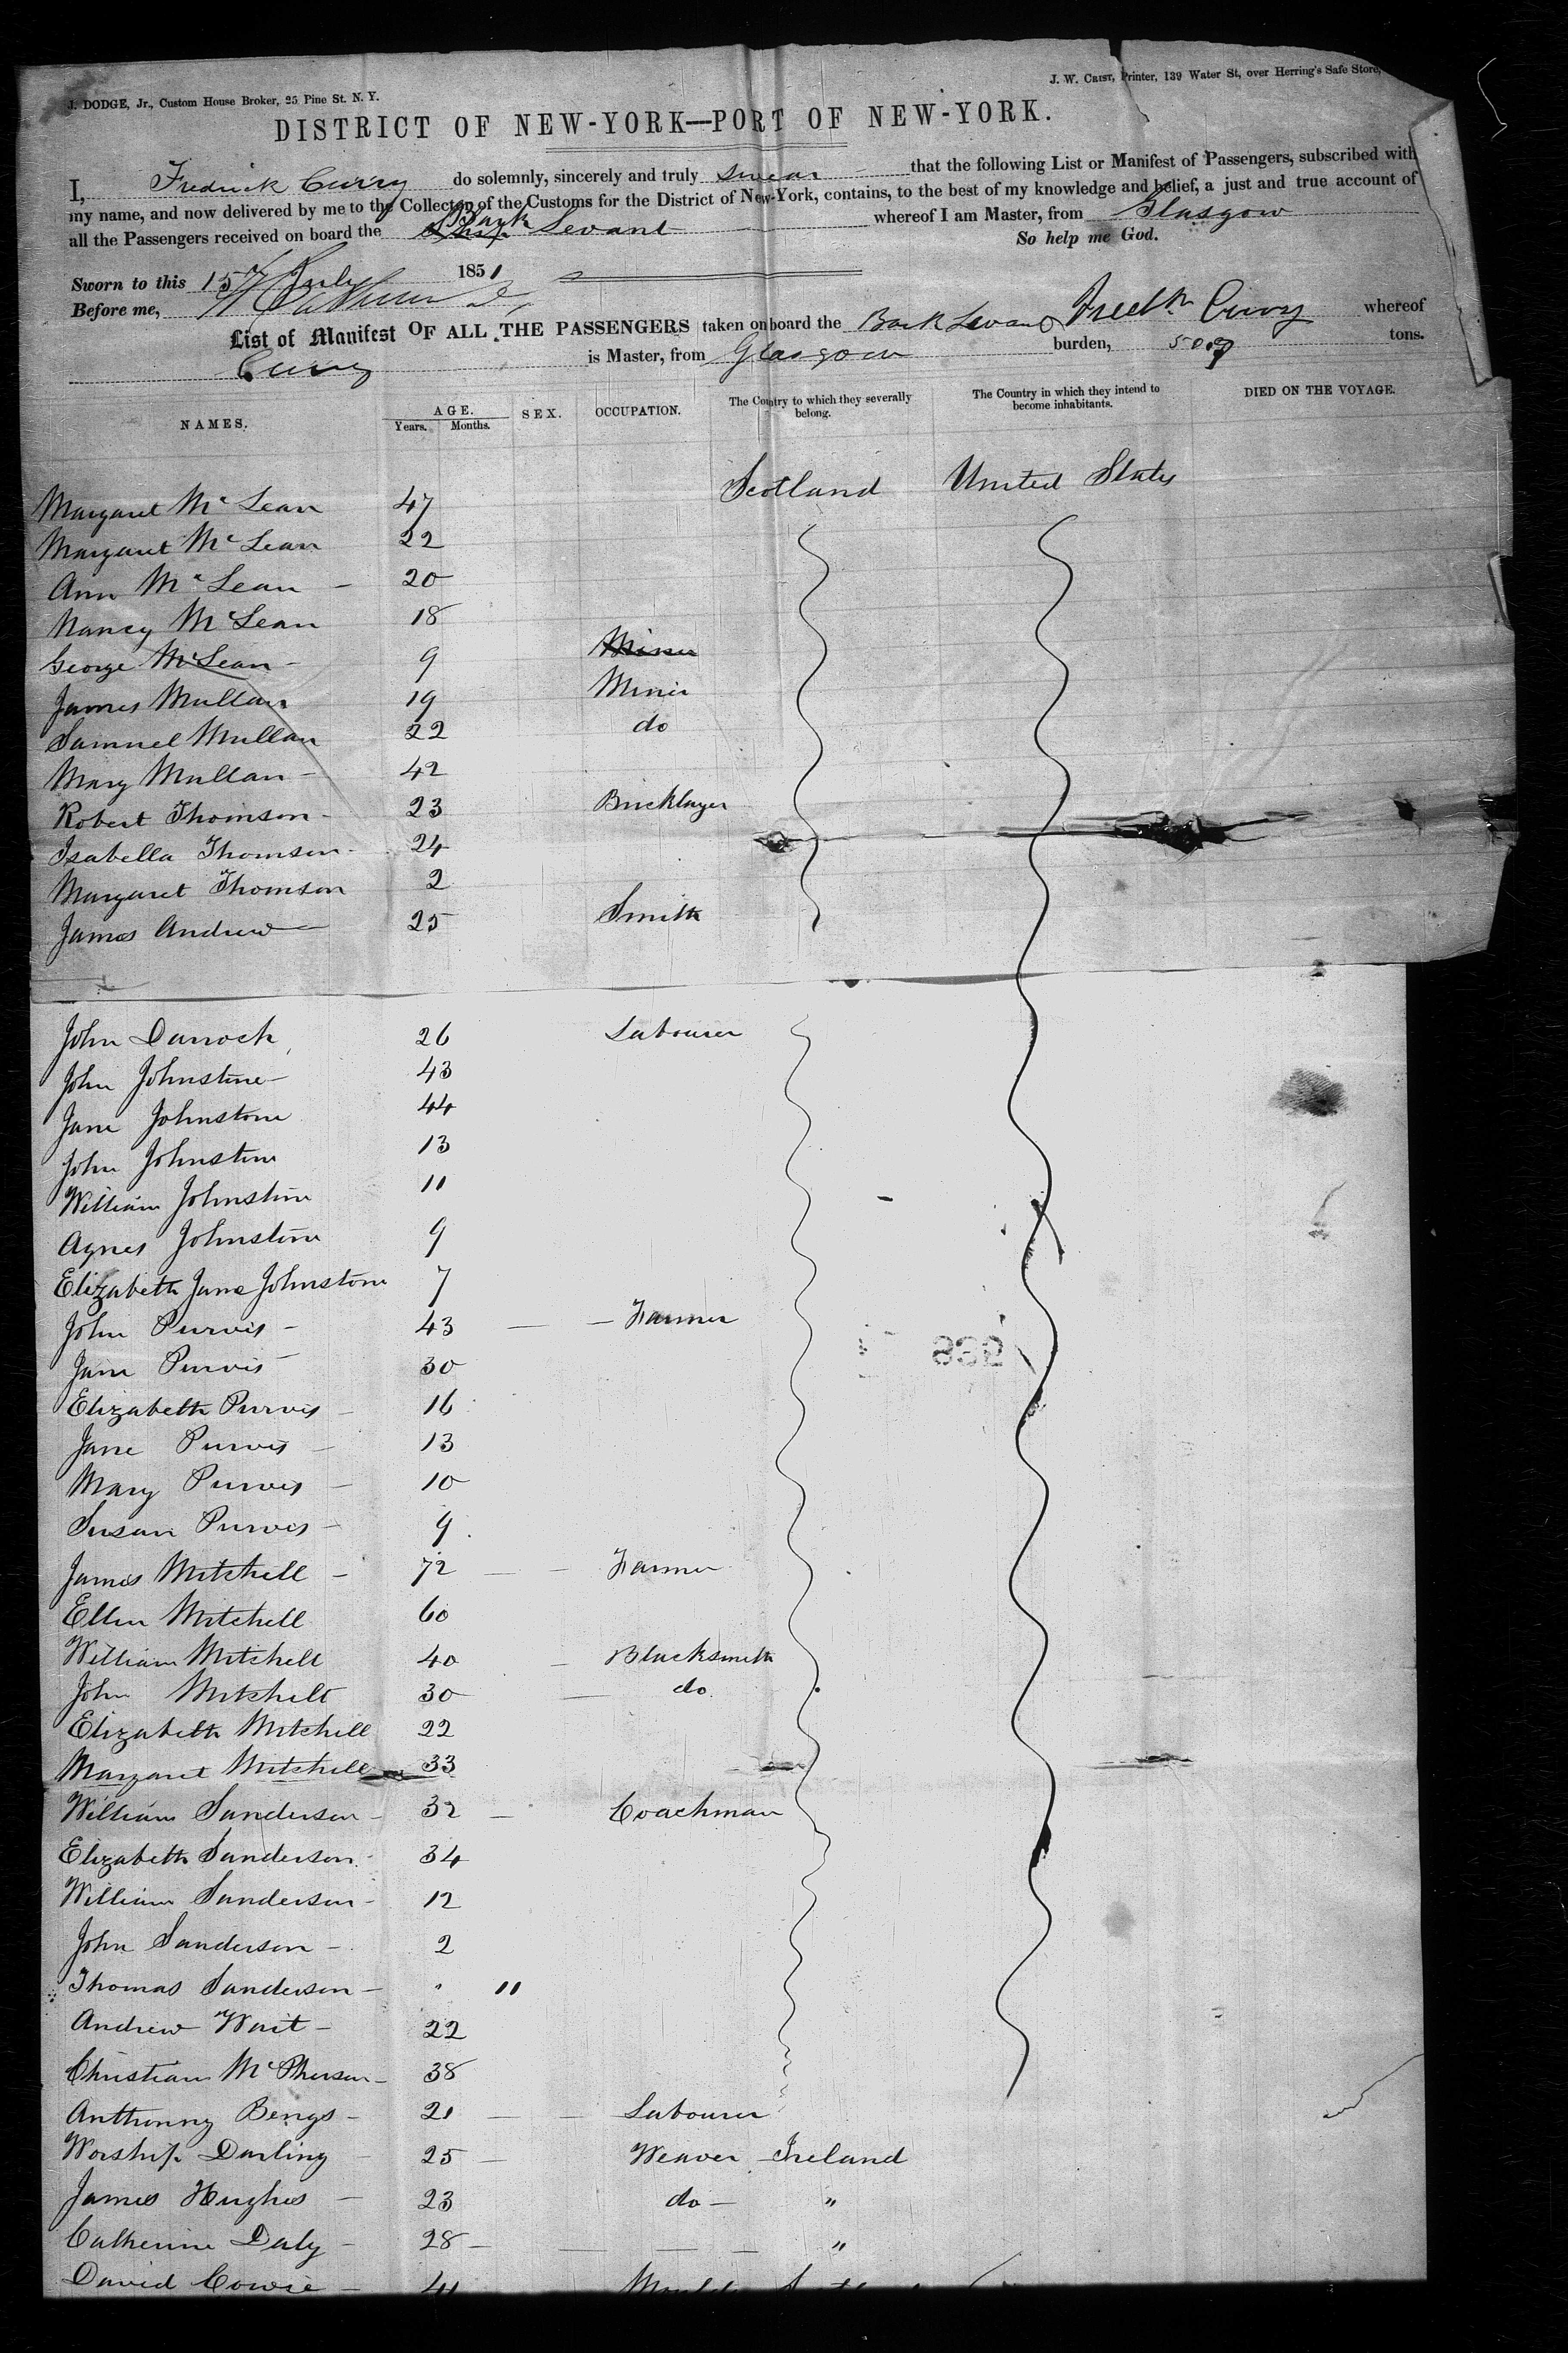 J. DODGE, Jr., Custom House Broker, 25 Pine St. N. Y.
J. W. CRIST, Printer, 139 Water St, over Herring's Safe Store,
DISTRICT OF NEW-YORK—PORT OF NEW-YORK.
I, Fredrick Curry do solemnly, sincerely and truly swear that the following List or Manifest of Passengers, subscribed with
my name, and now delivered by me to the Collector of the Customs for the District of New-York, contains, to the best of my knowledge and belief, a just and true account of
all the Passengers received on board the Bark Levant whereof I am Master, from Glasgow
So help me God.
Sworn to this 15 July 1851
Before me,
Fredk Curry
List of Manifest OF ALL THE PASSENGERS taken on board the Bark Levant whereof
Curry is Master, from Glasgow burden, 509 tons.
NAMES. AGE. Years. Months. SEX. OCCUPATION. The Country to which they severally belong. The Country in which they intend to become inhabitants. DIED ON THE VOYAGE.
Scotland United States
Margaret McLean 47
Margaret McLean 22
Ann McLean 20
Nancy McLean 18
George McLean 9 Miner
James Mullan 19 Miner
Samuel Mullan 22 do
Mary Mullan 42
Robert Thomson 23 Bricklayer
Isabella Thomson 24
Margaret Thomson 2
James Andrew 25 Smith
John Darroch 26 Labourer
John Johnstone 43
Jane Johnstone 44
John Johnstone 13
William Johnstone 11
Agnes Johnstone 9
Elizabeth Jane Johnstone 7
John Purvis 43 Farmer
Jane Purvis 30
Elizabeth Purvis 16
Jane Purvis 13
Mary Purvis 10
Susan Purvis 9
James Mitchell 72 Farmer
Ellen Mitchell 60
William Mitchell 40 Blacksmith
John Mitchell 30 do
Elizabeth Mitchell 22
Margaret Mitchell 33
William Sanderson 32 Coachman
Elizabeth Sanderson 34
William Sanderson 12
John Sanderson 2
Thomas Sanderson 11
Andrew Wait 22
Christian McPherson 38
Anthonny Bengs 21 Labourer
Worship Darling 25 Weaver Ireland
James Hughes 23 do "
Catherine Daly 28 "
David Cowie 41